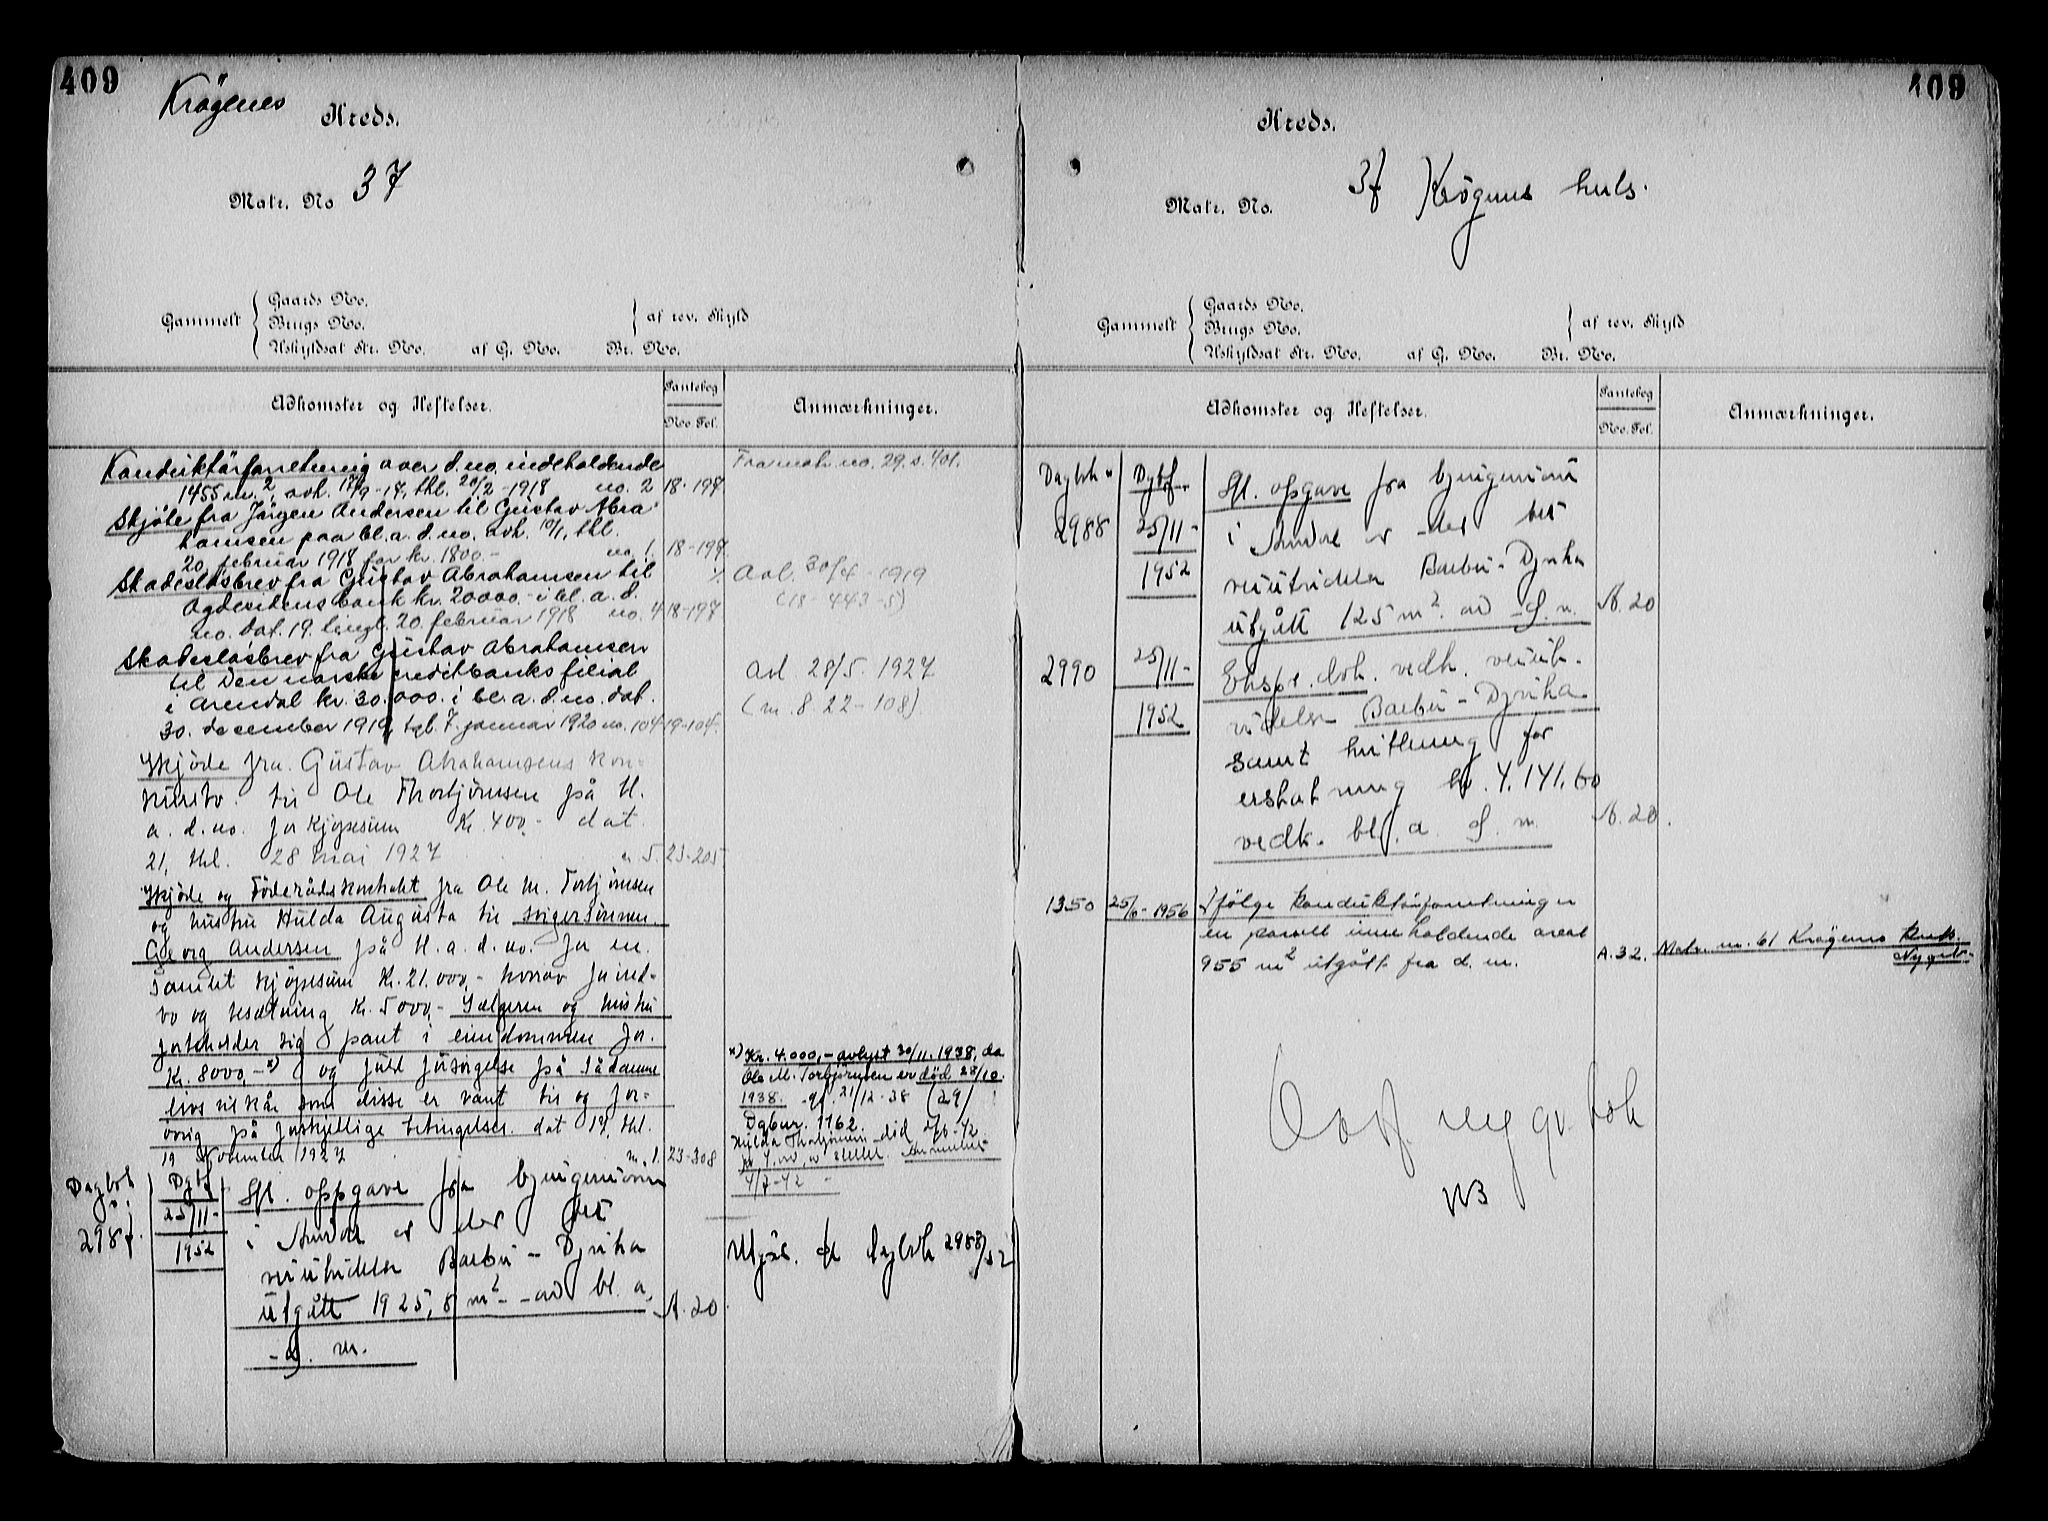 409
Krøgenes
Kreds.
Matr. No 37
Gammelt
Gaards No.
Brugs No.
Uskyldsat Str. No. af G. No. Br. No.
af rev. Skyld
Adkomster og Heftelser.
Pantebog
No Fol.
Anmærkninger.
Konduktørforretning over d. no. indeholdende
1455 m.², avh. 17/9-17, thl. 20/2-1918 no. 2 18-197
Fra matr. no. 29. s. 401.
Skjøte fra Jørgen Andersen til Gustav Abra-
hamsen paa bl. a. d. no. avh. 10/1, thl.
20. februar 1918 for kr. 1800.- no. 1. 18-197.
Skadesløsbrev fra Gustav Abrahamsen til
Agdesidens bank kr. 20000.- i bl. a. d.
no. dat. 19. tingl. 20. februar 1918 no. 4 18-197
Avl. 30/4-1919
(18-443-5)
Skadesløsbrev fra Gustav Abrahamsen
til Den norske creditbanks filial
i Arendal kr. 30.000. i bl. a. d. no. dat.
30. december 1919, tgl. 7. januar 1920 no. 104 19-104.
Avl 28/5. 1927
(m. 8. 22-108)
Skjøde fra Gustav Abrahamsens kon-
kursbo til Ole Thorbjørnsen på bl.
a. d. no. for kjøpesum Kr. 400,- dat
21, thl. 28 mai 1927 n 5. 23-205
Skjøde og Føderådskontrakt fra Ole M. Torbjørnsen
og hustru Hulda Augusta til svigersønnen
Georg Andersen på bl. a. d. no. for en
samlet kjøpesum Kr. 21.000,- hvorav for ind-
bo og besætning Kr. 5000,- Sælgeren og hustru
forbeholder sig pant i eiendommen for
Kr. 8000,- x) og fuld forsørgelse på sådanne
livsvilkår som disse er vant til og for-
øvrig på forskjellige betingelser. dat 17, thl.
19 November 1927 n. 1. 23-308
x) Kr. 4.000,- avlyst 30/11. 1938, da
Ole M. Torbjørnsen er død 28/10.
1938. 21/12-38 (29)
Dgbnr. 1762.
Hulda Thorbjørnsen død
4/7-42 -
Dagbok
nr
2987.
Dgbf.
25/11-
1952
Ifl. oppgave fra byingeniøren
i Arendal er det til
veiutvidelse Barbu - Dyvika
utgått 1925,8 m² - av bl. a.
- d. nr.
A. 20.
Utgår. Dagbok 2988/52
409
Kreds.
Matr. No. 37 Krøgenes huls.
Gammelt
Gaards No.
Brugs No.
Uskyldsat Str. No. af G. No. Br. No.
af rev. Skyld
Adkomster og Heftelser.
Pantebog
No. Fol.
Anmærkninger.
Dagbok nr
2988
Dgbf.
25/11-
1952
Ifl. opgave fra byingeniøren
i Arendal er det til
veiutvidelse Barbu - Dyvika
utgått 125 m² av d. n.
A. 20
2990
25/11-
1952
Ekspr. dok. vedk. veiut-
videlse Barbu - Dyvika
samt kvittering for
erstatning kr. 4.141,60
vedk. bl. a. d. n.
A. 20.
1350 25/6-1956
Ifølge konduktørforretning er
en parsell inneholdende areal
955 m² utgått fra d. nr.
A. 32. Matr. nr. 61 Krøgenes
Nygrb.
Overf. ny gr. bok
NB